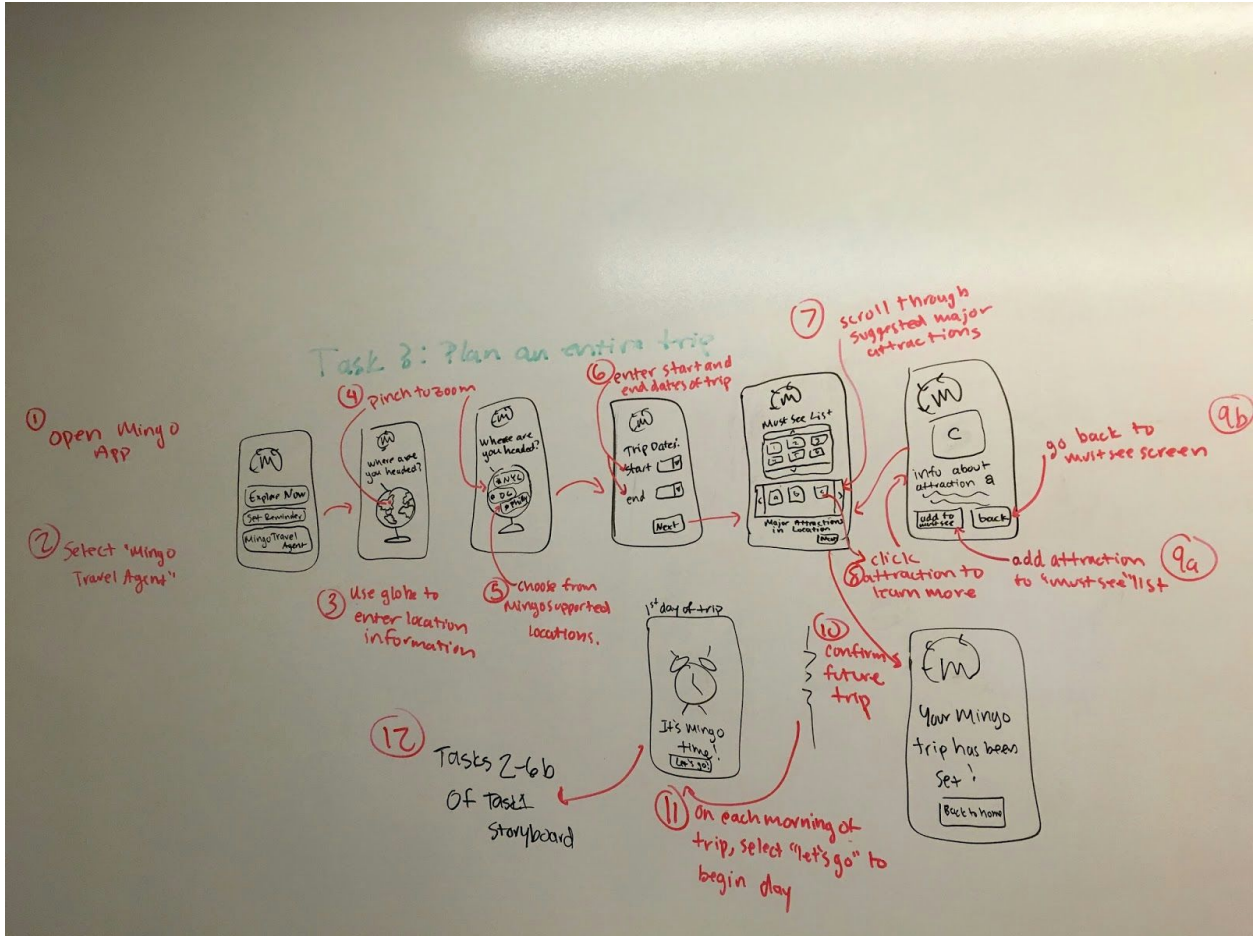 Task 3: Plan an entire trip
① open Mingo
App
② Select "Mingo
Travel Agent"
M
Explore Now
Set Reminder
Mingo Travel
Agent
③ Use globe to
enter location
information
④ pinch to zoom
M
Where are
you headed?
M
Where are
you headed?
NYC
DC
Philly
⑤ choose from
Mingo supported
locations.
⑥ enter start and
end dates of trip
M
Trip Dates:
start
end
Next
⑦ scroll through
suggested major
attractions
M
Must See List
1 2 3
a b c
Major Attractions
in Location
Next
⑧ click
attraction to
learn more
M
C
info about
attraction a
add to
must see
back
9b
go back to
must see screen
9a
add attraction
to "must see" list
⑩
confirm
future
trip
M
Your Mingo
trip has been
set!
Back to home
1st day of trip
It's Mingo
time!
Let's go!
⑪ On each morning of
trip, select "let's go" to
begin day
⑫
Tasks 2-6b
Of Task1
Storyboard